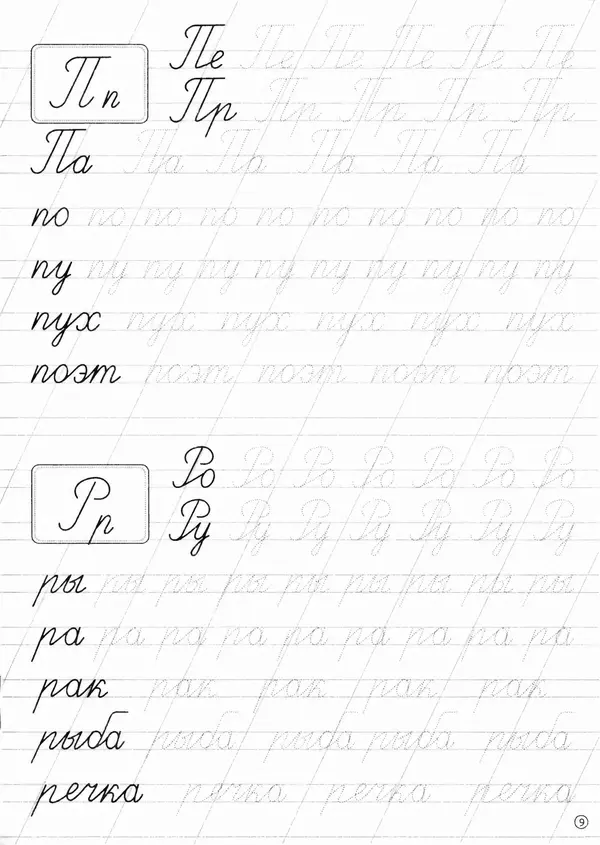 Пп
Пе Пе Пе Пе Пе Пе
Пр Пр Пр Пр Пр
Па Па Па Па Па Па
по по по по по по по по по по
пу пу пу пу пу пу пу пу пу пу
пух пух пух пух пух пух
поэт поэт поэт поэт поэт
Рр
Ро Ро Ро Ро Ро Ро Ро
Ру Ру Ру Ру Ру Ру Ру
ры ры ры ры ры ры ры ры ры
ра ра ра ра ра ра ра ра ра
рак рак рак рак рак
рыба рыба рыба рыба рыба
речка речка речка речка
9